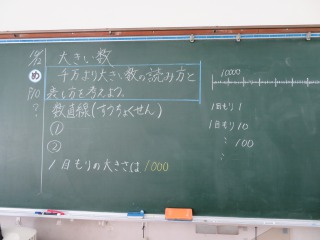 10/12 大きい数
め 千万より大きい数の読み方と
表し方を考えよう。
P10
?
数直線(すうちょくせん)
①
②
1目もりの大きさは1000
10000
1目もり 1
1目もり 10
〃 100
: